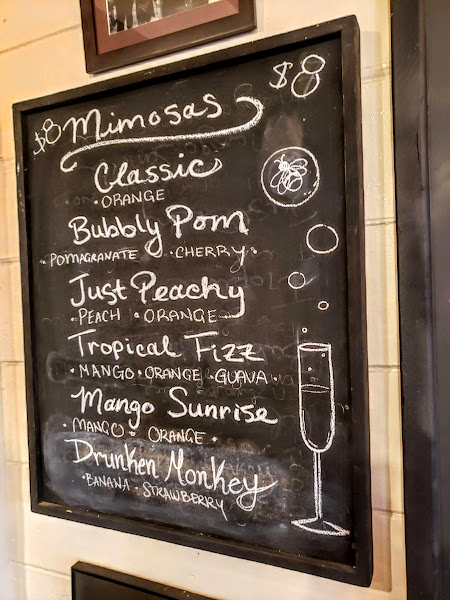 $8 Mimosas $8
Classic
• ORANGE
Bubbly Pom
• POMAGRANATE • CHERRY •
Just Peachy
• PEACH • ORANGE
Tropical Fizz
• MANGO • ORANGE • GUAVA •
Mango Sunrise
• MANGO • ORANGE •
Drunken Monkey
• BANANA • STRAWBERRY